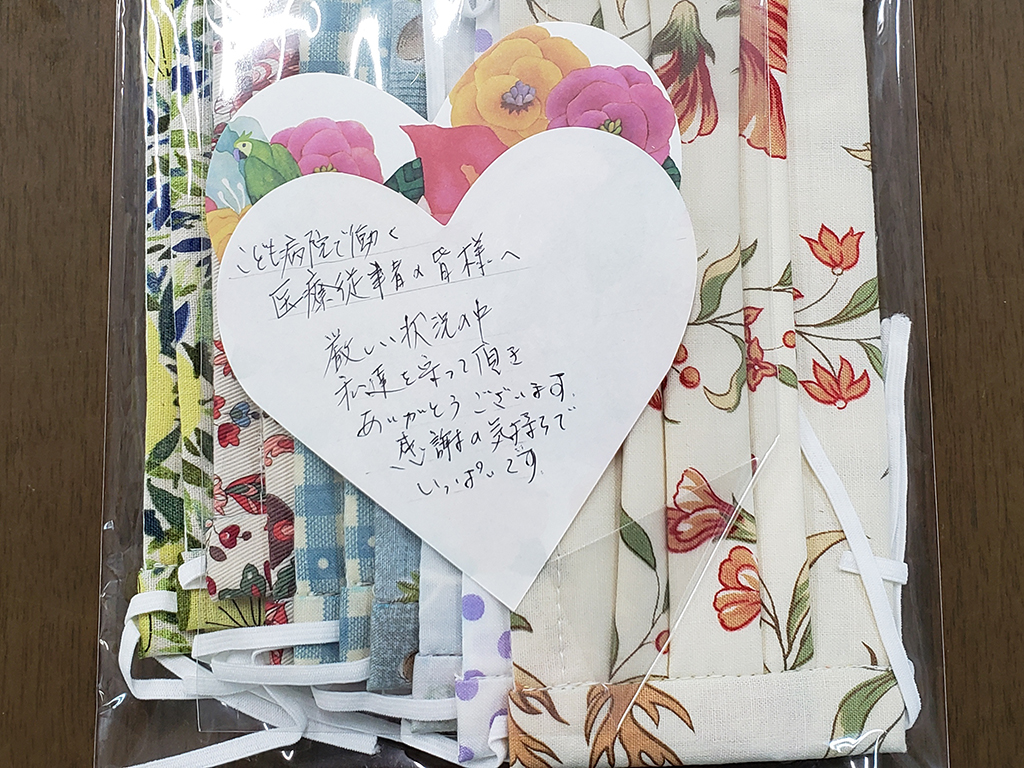 こども病院で働く
医療従事者の皆様へ
厳しい状況の中
私達を守って頂き
ありがとうございます。
感謝の気持ちで
いっぱいです。